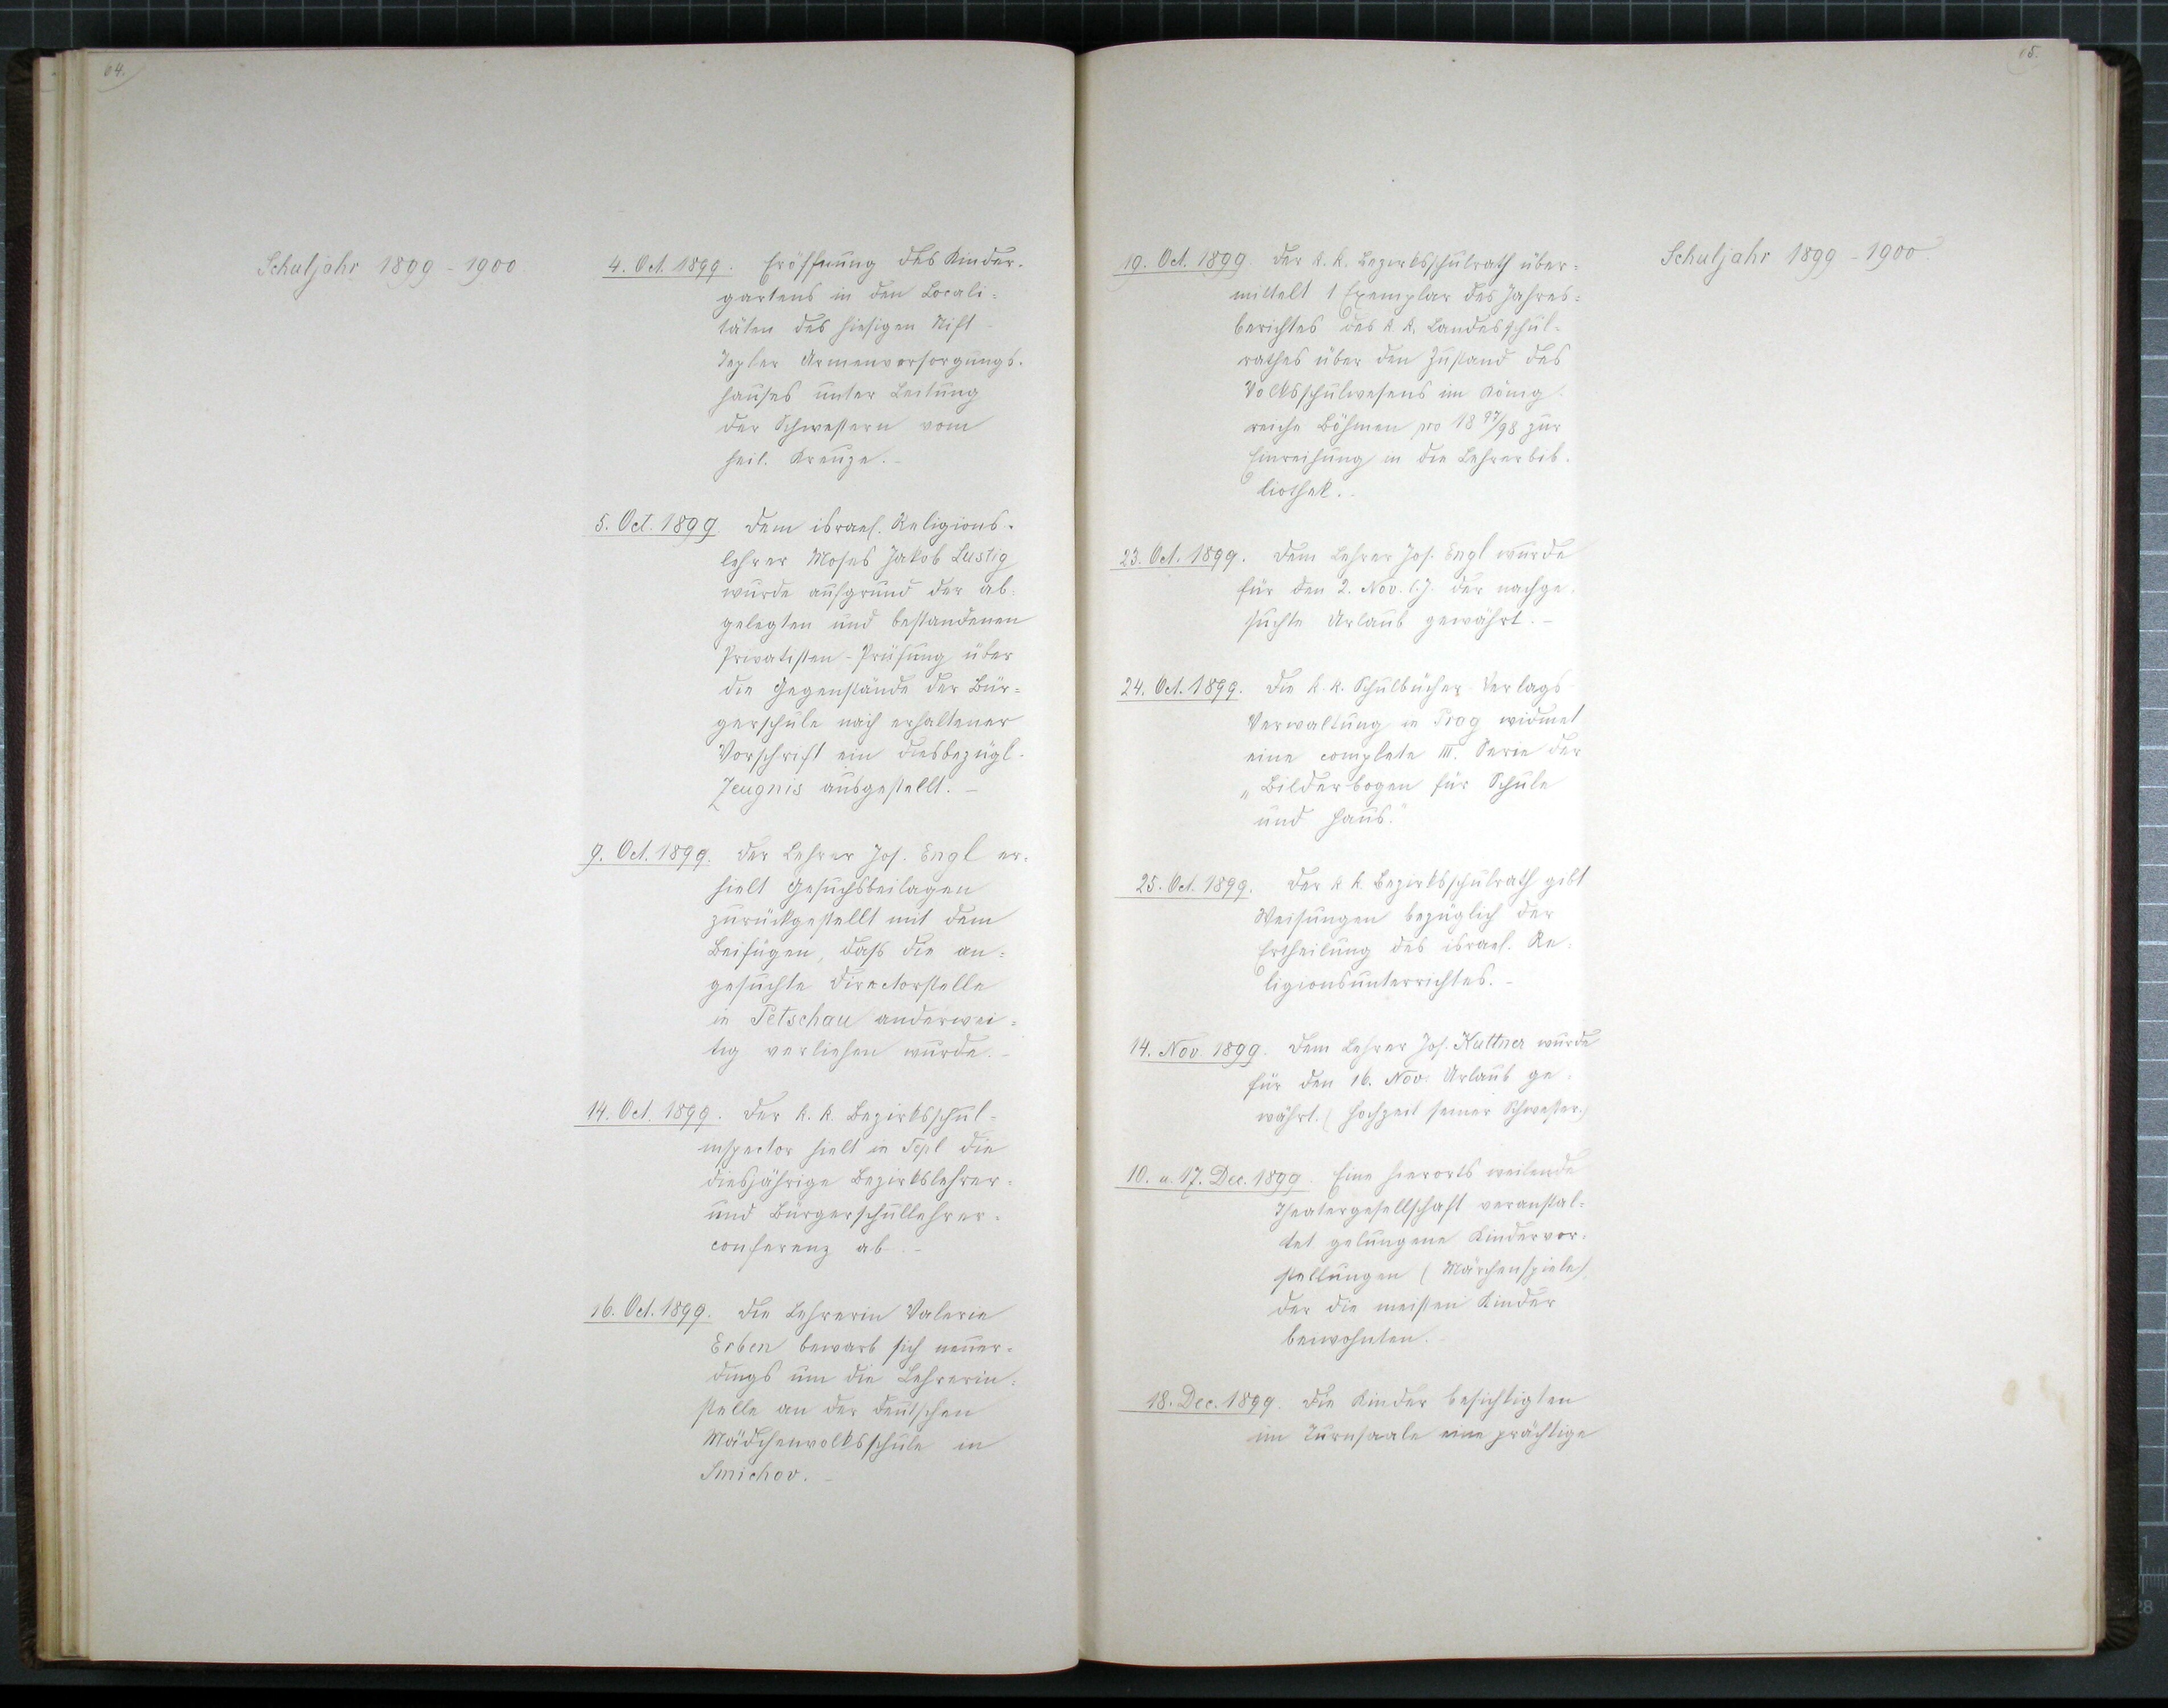 64.
Schuljahr 1899 - 1900
4. Oct. 1899. Eröffnung des Kinder-
gartens in den Locali-
täten des hiesigen Stift
Tepler Armenversorgungs-
hauses unter Leitung
der Schwestern vom
heil. Kreuze. -
5. Oct. 1899 Dem israel. Religions-
lehrer Moses Jakob Lustig
wurde aufgrund der ab-
gelegten und bestandenen
Privatisten-Prüfung über
die Gegenstände der Bür-
gerschule nach erhaltener
Vorschrift ein diesbezügl.
Zeugnis ausgestellt. -
9. Oct. 1899. Der Lehrer Jos. Engl er-
hielt Gesuchsbeilagen
zurückgestellt mit dem
Beifügen, daß die an-
gesuchte Directorstelle
in Petschau anderwei-
tig verliehen wurde. -
14. Oct. 1899. Der k. k. Bezirksschul-
inspector hielt in Tepl die
diesjährige Bezirkslehrer-
und Bürgerschullehrer-
conferenz ab. -
16. Oct. 1899. Die Lehrerin Valerie
Erben bewarb sich neuer-
dings um die Lehrerin-
stelle an der deutschen
Mädchenvolksschule in
Smichov. -
65.
Schuljahr 1899 - 1900
19. Oct. 1899. Der k. k. Bezirksschulrath über-
mittelt 1 Exemplar des Jahres-
berichtes des k. k. Landesschul-
rathes über den Zustand des
Volksschulwesens im König-
reiche Böhmen pro 1897/98 zur
Einreihung in die Lehrerbib-
liothek. -
23. Oct. 1899. Dem Lehrer Jos. Engl wurde
für den 2. Nov. l. J. der nachge-
suchte Urlaub gewährt. -
24. Oct. 1899. Die k. k. Schulbücher-Verlags
Verwaltung in Prag widmet
eine complete III. Serie der
„Bilderbogen für Schule
und Haus."
25. Oct. 1899. Der k. k. Bezirksschulrath gibt
Weisungen bezüglich der
Ertheilung des israel. Re-
ligionsunterrichtes. -
14. Nov. 1899. Dem Lehrer Jos. Kuttner wurde
für den 16. Nov. Urlaub ge-
währt. (Hochzeit seiner Schwester.)
10. u. 17. Dec. 1899. Eine hierorts weilende
Theatergesellschaft veranstal-
tet gelungene Kindervor-
stellungen (Märchenspiele)
der die meisten Kinder
beiwohnten. -
18. Dec. 1899. Die Kinder besichtigten
im Turnsaale eine prächtige